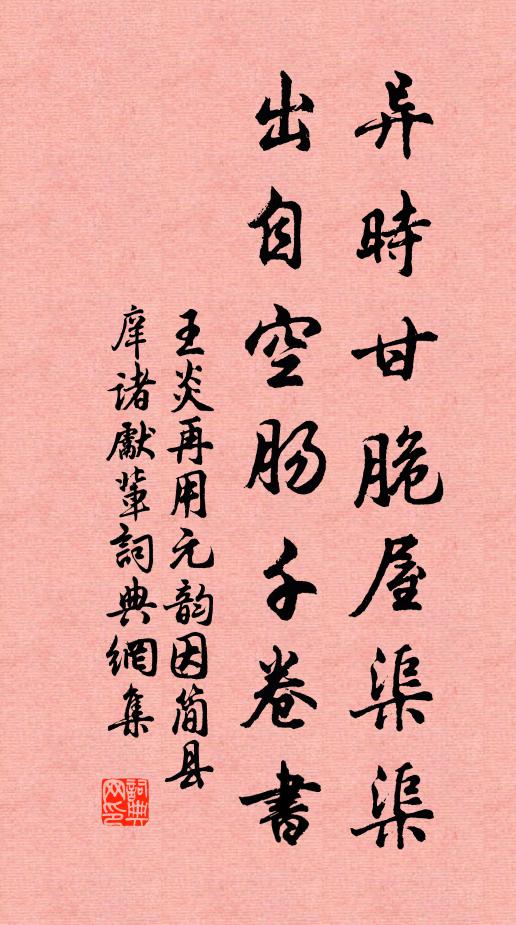 异時甘脆屋渠渠
出自空肠千卷書
王炎再用元韵因简县
庠诸獻軰詞典網集
詞典网印